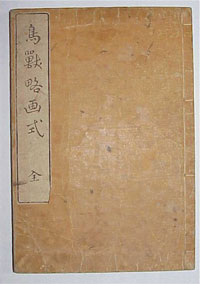 鳥獣略画式 全